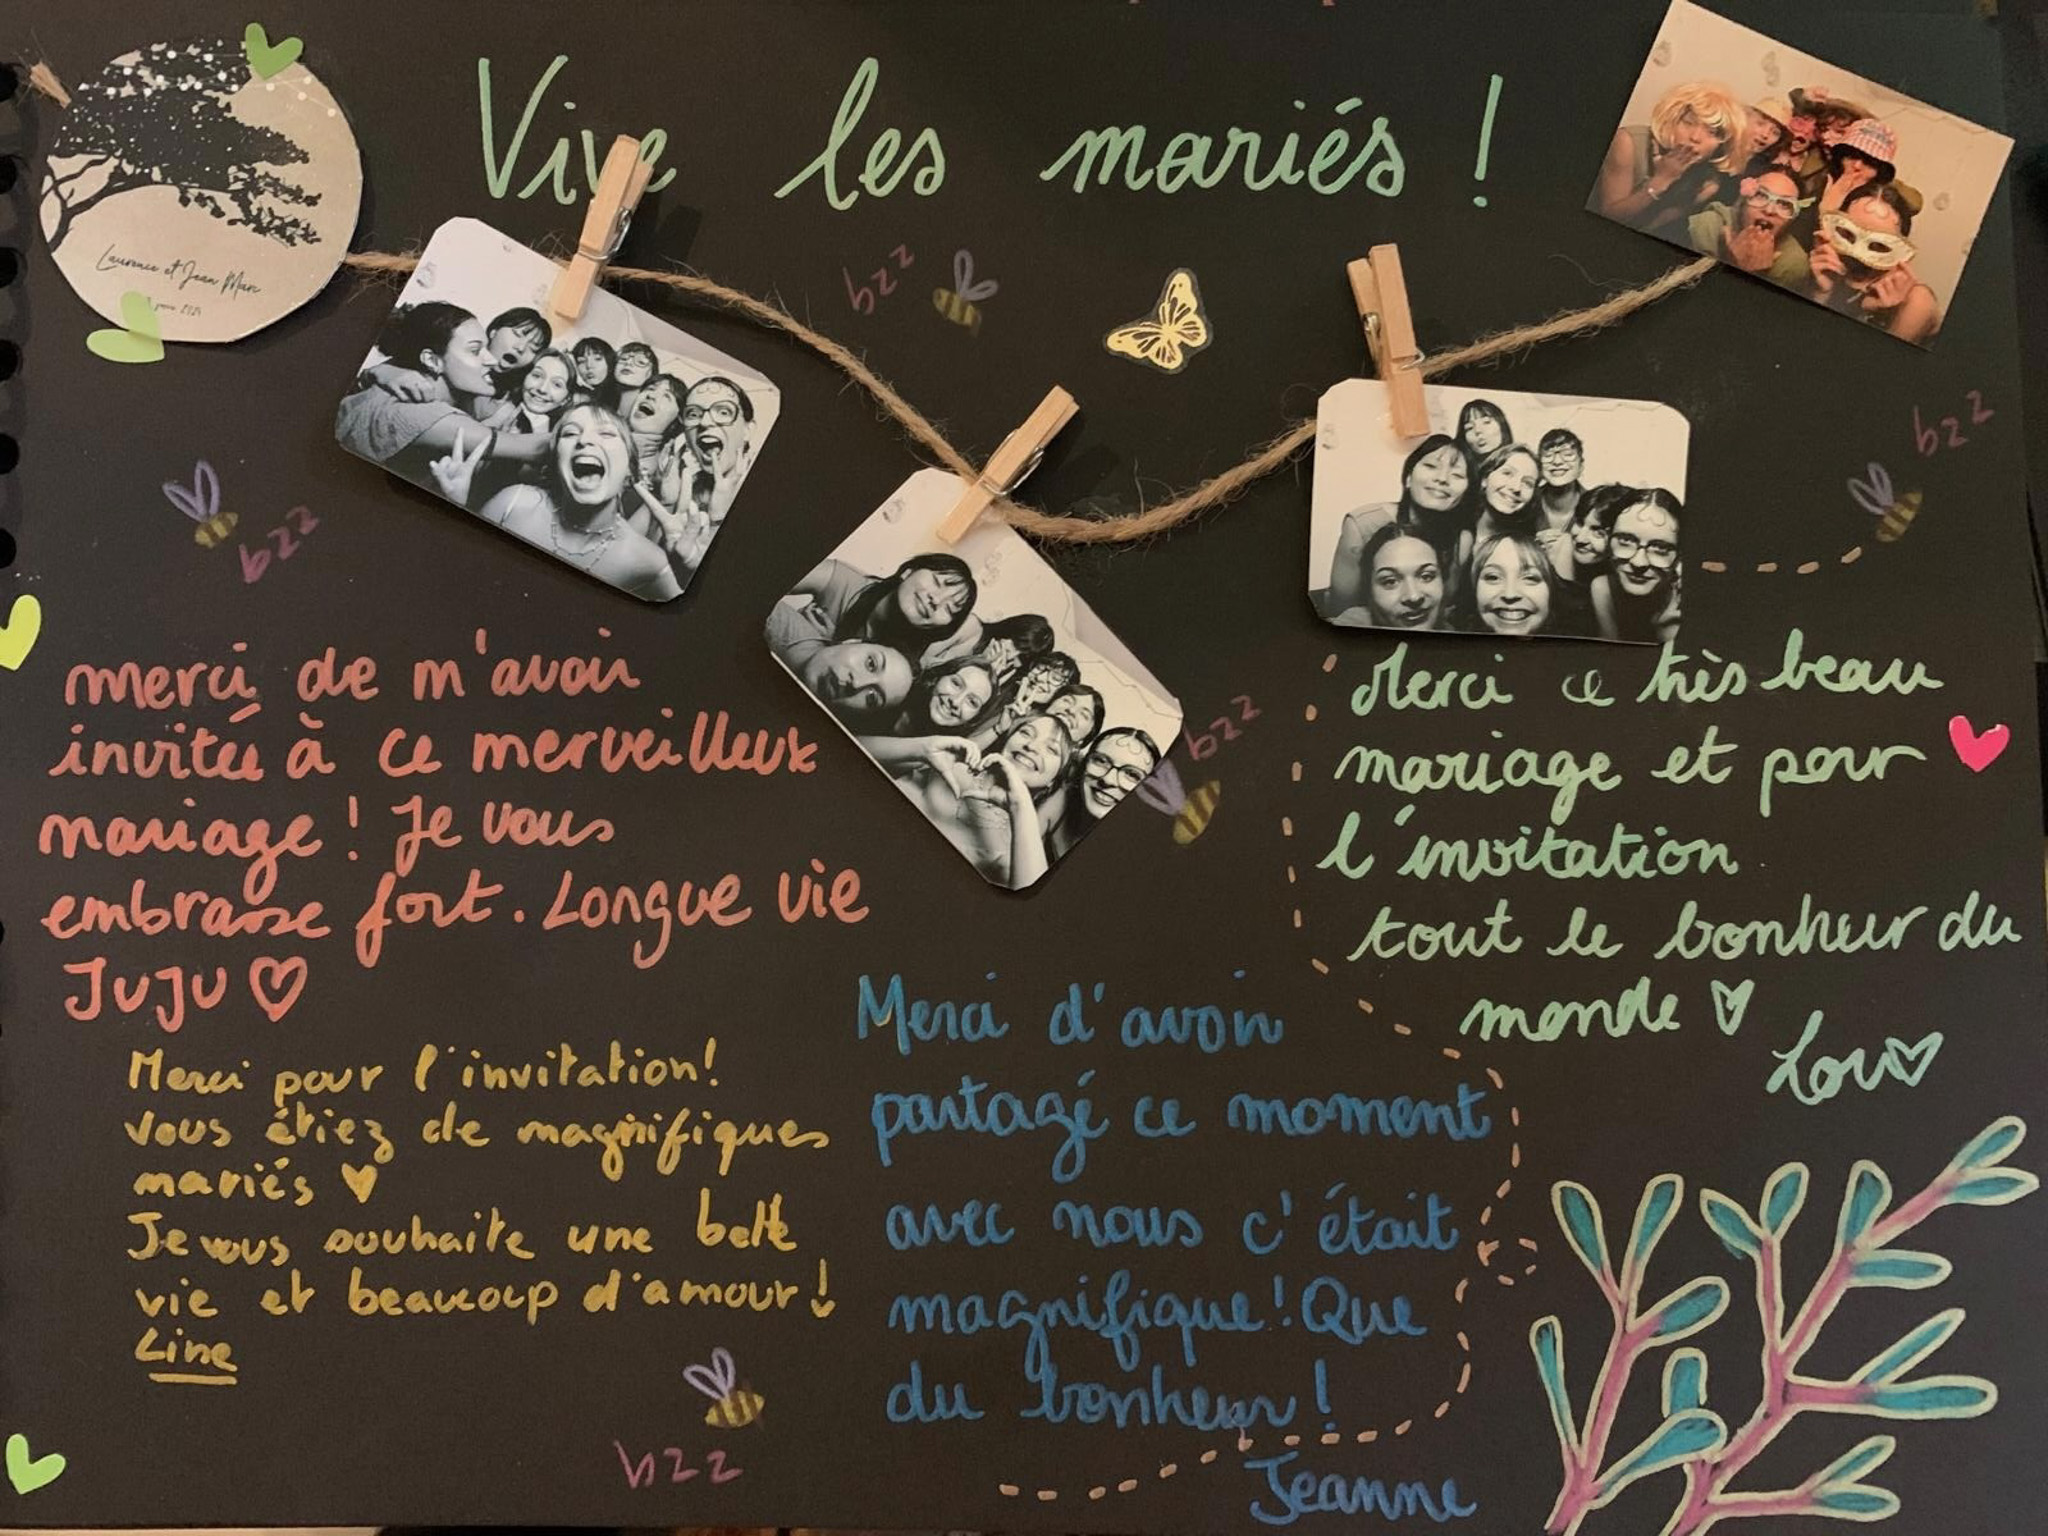 Vive les mariés !
Laurence et Jean Marc
bzz
bzz
bzz
bzz
merci de m'avoir
invitée à ce merveilleux
mariage ! Je vous
embrasse fort. Longue vie
JuJu ♡
Merci ce très beau
mariage et pour
l'invitation
tout le bonheur du
monde ♡
Lou♡
Merci pour l'invitation!
Vous étiez de magnifiques
mariés ♡
Je vous souhaite une belle
vie et beaucoup d'amour!
Line
Merci d'avoir
partagé ce moment
avec nous c'était
magnifique! Que
du bonheur !
Jeanne
bzz